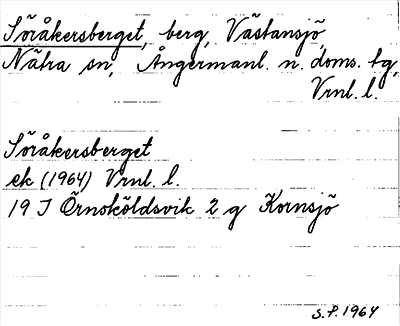 Söråkersberget, berg, Västansjö,
Nätra sn, Ångermanl. n. doms. tg,
Vrnl. l.
Söråkersberget
ek (1964) Vrnl. l.
19 J Örnsköldsvik 2 g Kornsjö
S.P. 1964